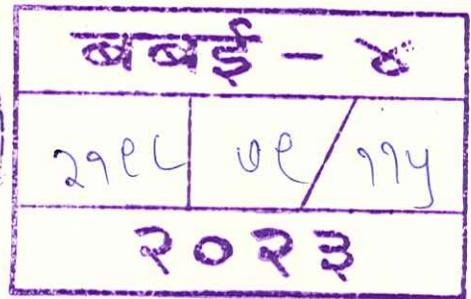 बबई - ४
२१९८ ७९/११५
२०२३